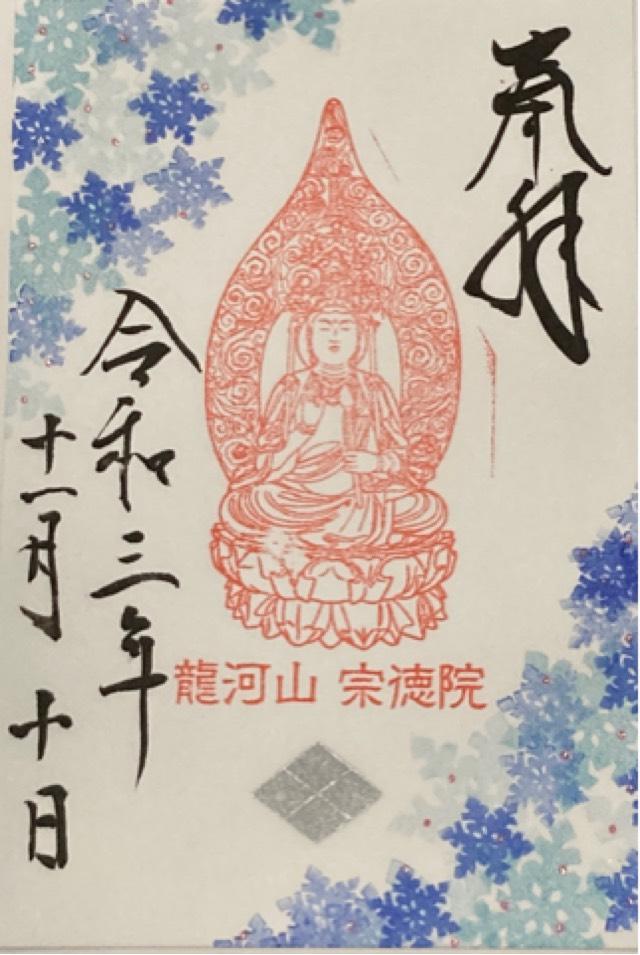 奉拝
令和三年
十一月十日
龍河山 宗徳院